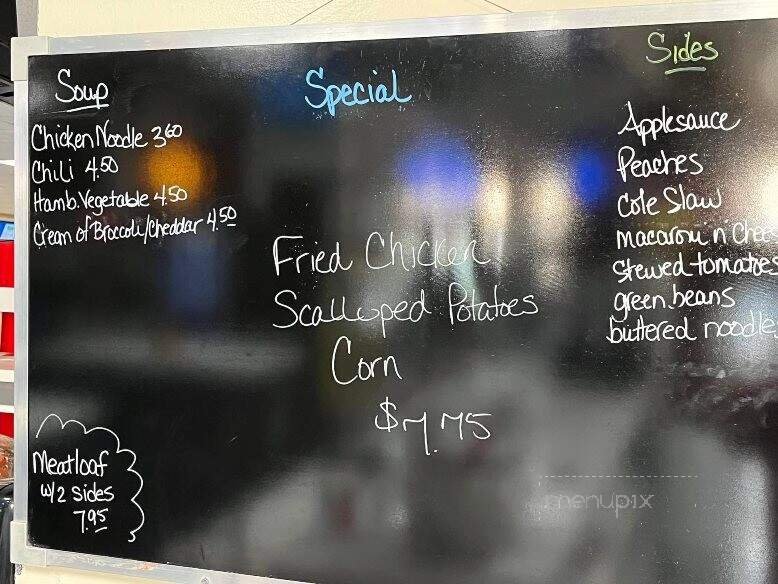 Soup
Chicken Noodle 3.60
Chili 4.50
Hamb. Vegetable 4.50
Cream of Broccoli/Cheddar 4.50
Meatloaf
w/2 sides
7.95
Special
Fried Chicken
Scalloped Potatoes
Corn
$7.75
Sides
Applesauce
Peaches
Cole Slaw
macaroni n' chees
Stewed tomatoes
green beans
buttered noodles
menupix